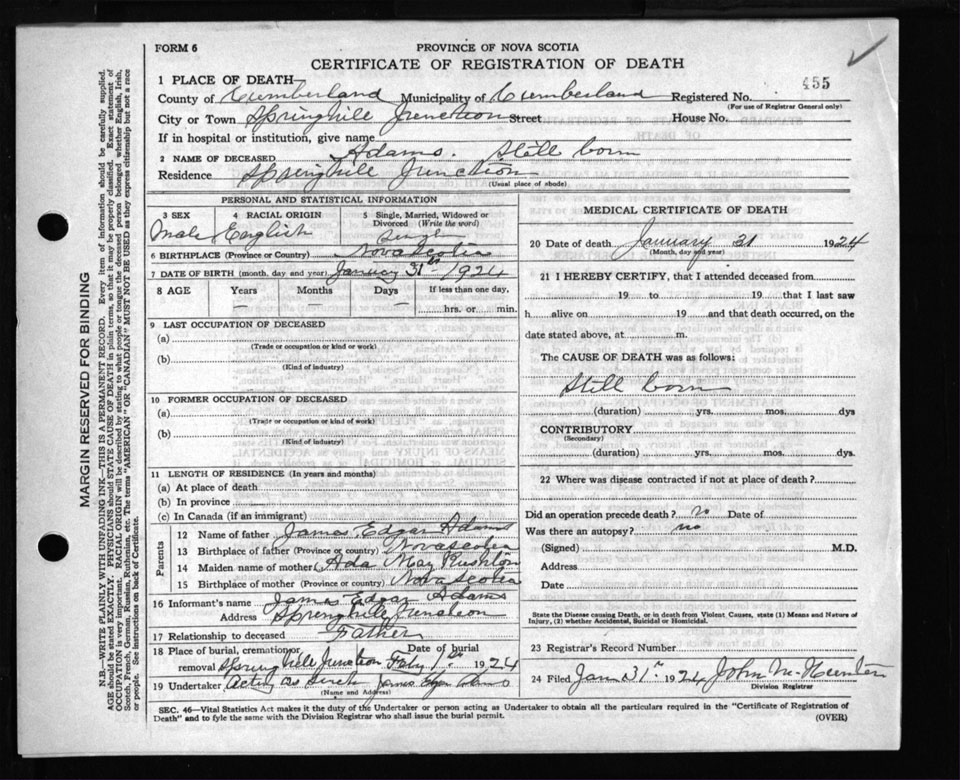 FORM 6
PROVINCE OF NOVA SCOTIA
CERTIFICATE OF REGISTRATION OF DEATH
455
1 PLACE OF DEATH
County of Cumberland Municipality of Cumberland Registered No.
(For use of Registrar General only)
City or Town Springhill Junction Street House No.
If in hospital or institution, give name
2 NAME OF DECEASED Adams. Still born
Residence Springhill Junction
(Usual place of abode)
PERSONAL AND STATISTICAL INFORMATION
3 SEX 4 RACIAL ORIGIN 5 Single, Married, Widowed or Divorced (Write the word)
Male English Single
6 BIRTHPLACE (Province or Country) Nova Scotia
7 DATE OF BIRTH (month, day and year) January 31st 1924
8 AGE Years Months Days If less than one day,
— — — hrs. or min.
9 LAST OCCUPATION OF DECEASED
(a)
(Trade or occupation or kind or work)
(b)
(Kind of industry)
10 FORMER OCCUPATION OF DECEASED
(a)
(Trade or occupation or kind of work)
(b)
(Kind of industry)
11 LENGTH OF RESIDENCE (In years and months)
(a) At place of death
(b) In province
(c) In Canada (if an immigrant)
Parents
12 Name of father James Edgar Adams
13 Birthplace of father (Province or country) Nova Scotia
14 Maiden name of mother Ada May Rushton
15 Birthplace of mother (Province or country) Nova Scotia
16 Informant's name James Edgar Adams
Address Springhill Junction
17 Relationship to deceased Father
18 Place of burial, cremation or removal Springhill Junction Date of burial Feby 1st 1924
19 Undertaker Acting as such James Edgar Adams
(Name and Address)
MEDICAL CERTIFICATE OF DEATH
20 Date of death January 31 1924
(Month, day and year)
21 I HEREBY CERTIFY, that I attended deceased from
19 to 19 that I last saw
h alive on 19 and that death occurred, on the
date stated above, at m.
The CAUSE OF DEATH was as follows:
Still born
(duration) yrs. mos. dys
CONTRIBUTORY
(Secondary)
(duration) yrs. mos. dys.
22 Where was disease contracted if not at place of death?
Did an operation precede death? no Date of
Was there an autopsy? no
(Signed) M.D.
Address
Date
State the Disease causing Death, or in death from Violent Causes, state (1) Means and Nature of
Injury, (2) whether Accidental, Suicidal or Homicidal.
23 Registrar's Record Number
24 Filed Jan 31st 1924 John M. Hunter
Division Registrar
SEC. 46—Vital Statistics Act makes it the duty of the Undertaker or person acting as Undertaker to obtain all the particulars required in the "Certificate of Registration of
Death" and to fyle the same with the Division Registrar who shall issue the burial permit.
(OVER)
MARGIN RESERVED FOR BINDING
N.B.—WRITE PLAINLY WITH UNFADING INK—THIS IS A PERMANENT RECORD. Every item of information should be carefully supplied.
AGE should be stated EXACTLY. PHYSICIANS should STATE CAUSE OF DEATH in plain terms, so that it may be properly classified. Exact statement of
OCCUPATION is very important. RACIAL ORIGIN will be described by stating to what people or tongue the deceased person belonged whether English, Irish,
Scotch, French, German, Russian, Ruthenian, etc. The terms "AMERICAN" OR "CANADIAN" MUST NOT BE USED as they express citizenship but not a race
or people. See instructions on back of Certificate.